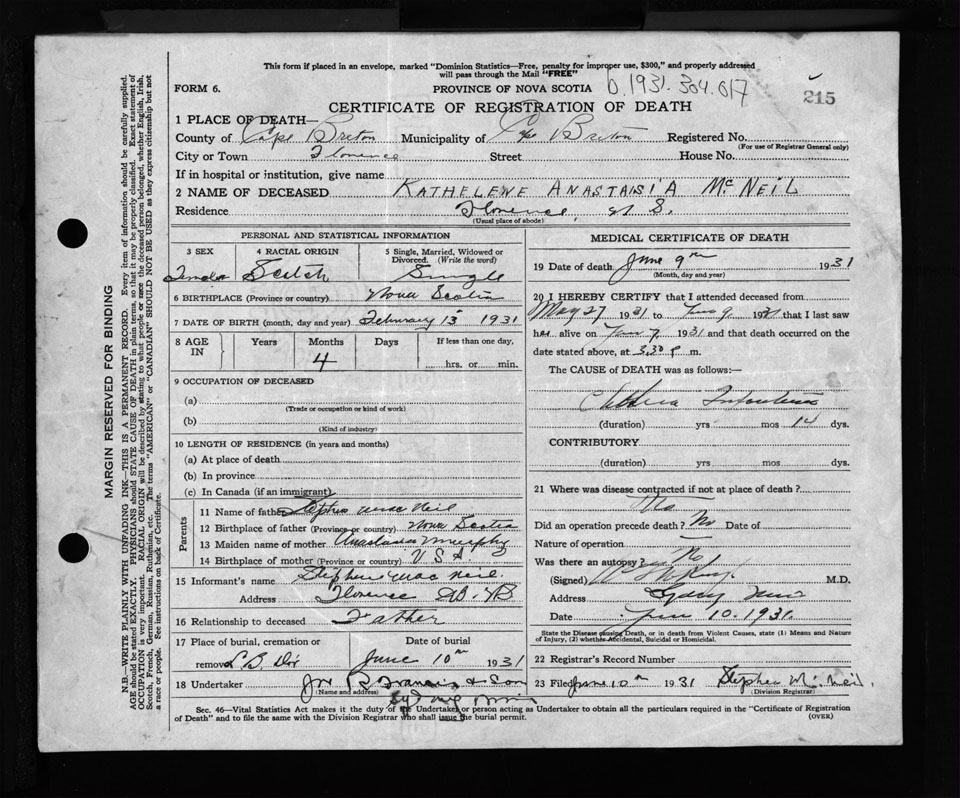 This form if placed in an envelope, marked "Dominion Statistics—Free, penalty for improper use, $300," and properly addressed
will pass through the Mail "FREE"
FORM 6. PROVINCE OF NOVA SCOTIA D.1931.304.017 215
CERTIFICATE OF REGISTRATION OF DEATH
1 PLACE OF DEATH—
County of Cape Breton Municipality of Cape Breton Registered No.
(For use of Registrar General only)
City or Town Florence Street House No.
If in hospital or institution, give name
2 NAME OF DECEASED KATHELENE ANASTAISIA McNEIL
Residence Florence, N S.
(Usual place of abode)
PERSONAL AND STATISTICAL INFORMATION
3 SEX 4 RACIAL ORIGIN 5 Single, Married, Widowed or
Divorced. (Write the word)
Scotch Single
6 BIRTHPLACE (Province or country) Nova Scotia
7 DATE OF BIRTH (month, day and year) February 15 1931
8 AGE IN Years Months Days If less than one day,
4 hrs. or min.
9 OCCUPATION OF DECEASED
(a)
(Trade or occupation or kind of work)
(b)
(Kind of industry)
10 LENGTH OF RESIDENCE (in years and months)
(a) At place of death
(b) In province
(c) In Canada (if an immigrant)
Parents
11 Name of father Stephen Mac Neil
12 Birthplace of father (Province or country) Nova Scotia
13 Maiden name of mother Anastasia Murphy
14 Birthplace of mother (Province or country) U S A
15 Informant's name Stephen Mac Neil.
Address Florence
16 Relationship to deceased Father
17 Place of burial, cremation or Date of burial
removal June 10th 1931
18 Undertaker & Son
(Name and address)
Sydney Mines
MEDICAL CERTIFICATE OF DEATH
19 Date of death June 9th 1931
(Month, day and year)
20 I HEREBY CERTIFY that I attended deceased from
May 27 1931 to June 9 1931 that I last saw
her alive on June 7 1931 and that death occurred on
date stated above, at 3.30 P m.
The CAUSE of DEATH was as follows:—
Cholera Infantum
(duration) yrs mos 14 dys.
CONTRIBUTORY
(duration) yrs. mos dys.
21 Where was disease contracted if not at place of death?
Did an operation precede death? No Date of
Nature of operation
Was there an autopsy? No
(Signed) M.D.
Address Sydney Mines
Date June 10. 1931.
State the Disease causing Death, or in death from Violent Causes, state (1) Means and
Nature of Injury, (2) whether Accidental, Suicidal or Homicidal.
22 Registrar's Record Number
23 Filed June 10th 1931 Stephen McNeil.
(Division Registrar)
Sec. 46—Vital Statistics Act makes it the duty of the Undertaker or person acting as Undertaker to obtain all the particulars required in the "Certificate of Registration
of Death" and to file the same with the Division Registrar who shall issue the burial permit. (OVER)
MARGIN RESERVED FOR BINDING
N.B.—WRITE PLAINLY WITH UNFADING INK—THIS IS A PERMANENT RECORD. Every item of information should be carefully supplied.
AGE should be stated EXACTLY. PHYSICIANS should STATE CAUSE OF DEATH in plain terms, so that it may be properly classified. Exact statement of
OCCUPATION is very important. RACIAL ORIGIN will be described by stating to what people or race the deceased person belonged, whether English, Irish,
Scotch, French, German, Russian, Ruthenian, etc. The terms "AMERICAN" or "CANADIAN" SHOULD NOT BE USED as they express citizenship but not
a race or people. See instructions on back of Certificate.